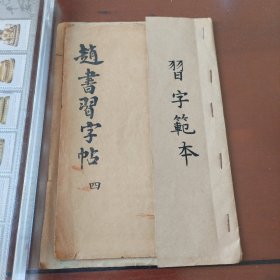 習字範本
趙書習字帖
四